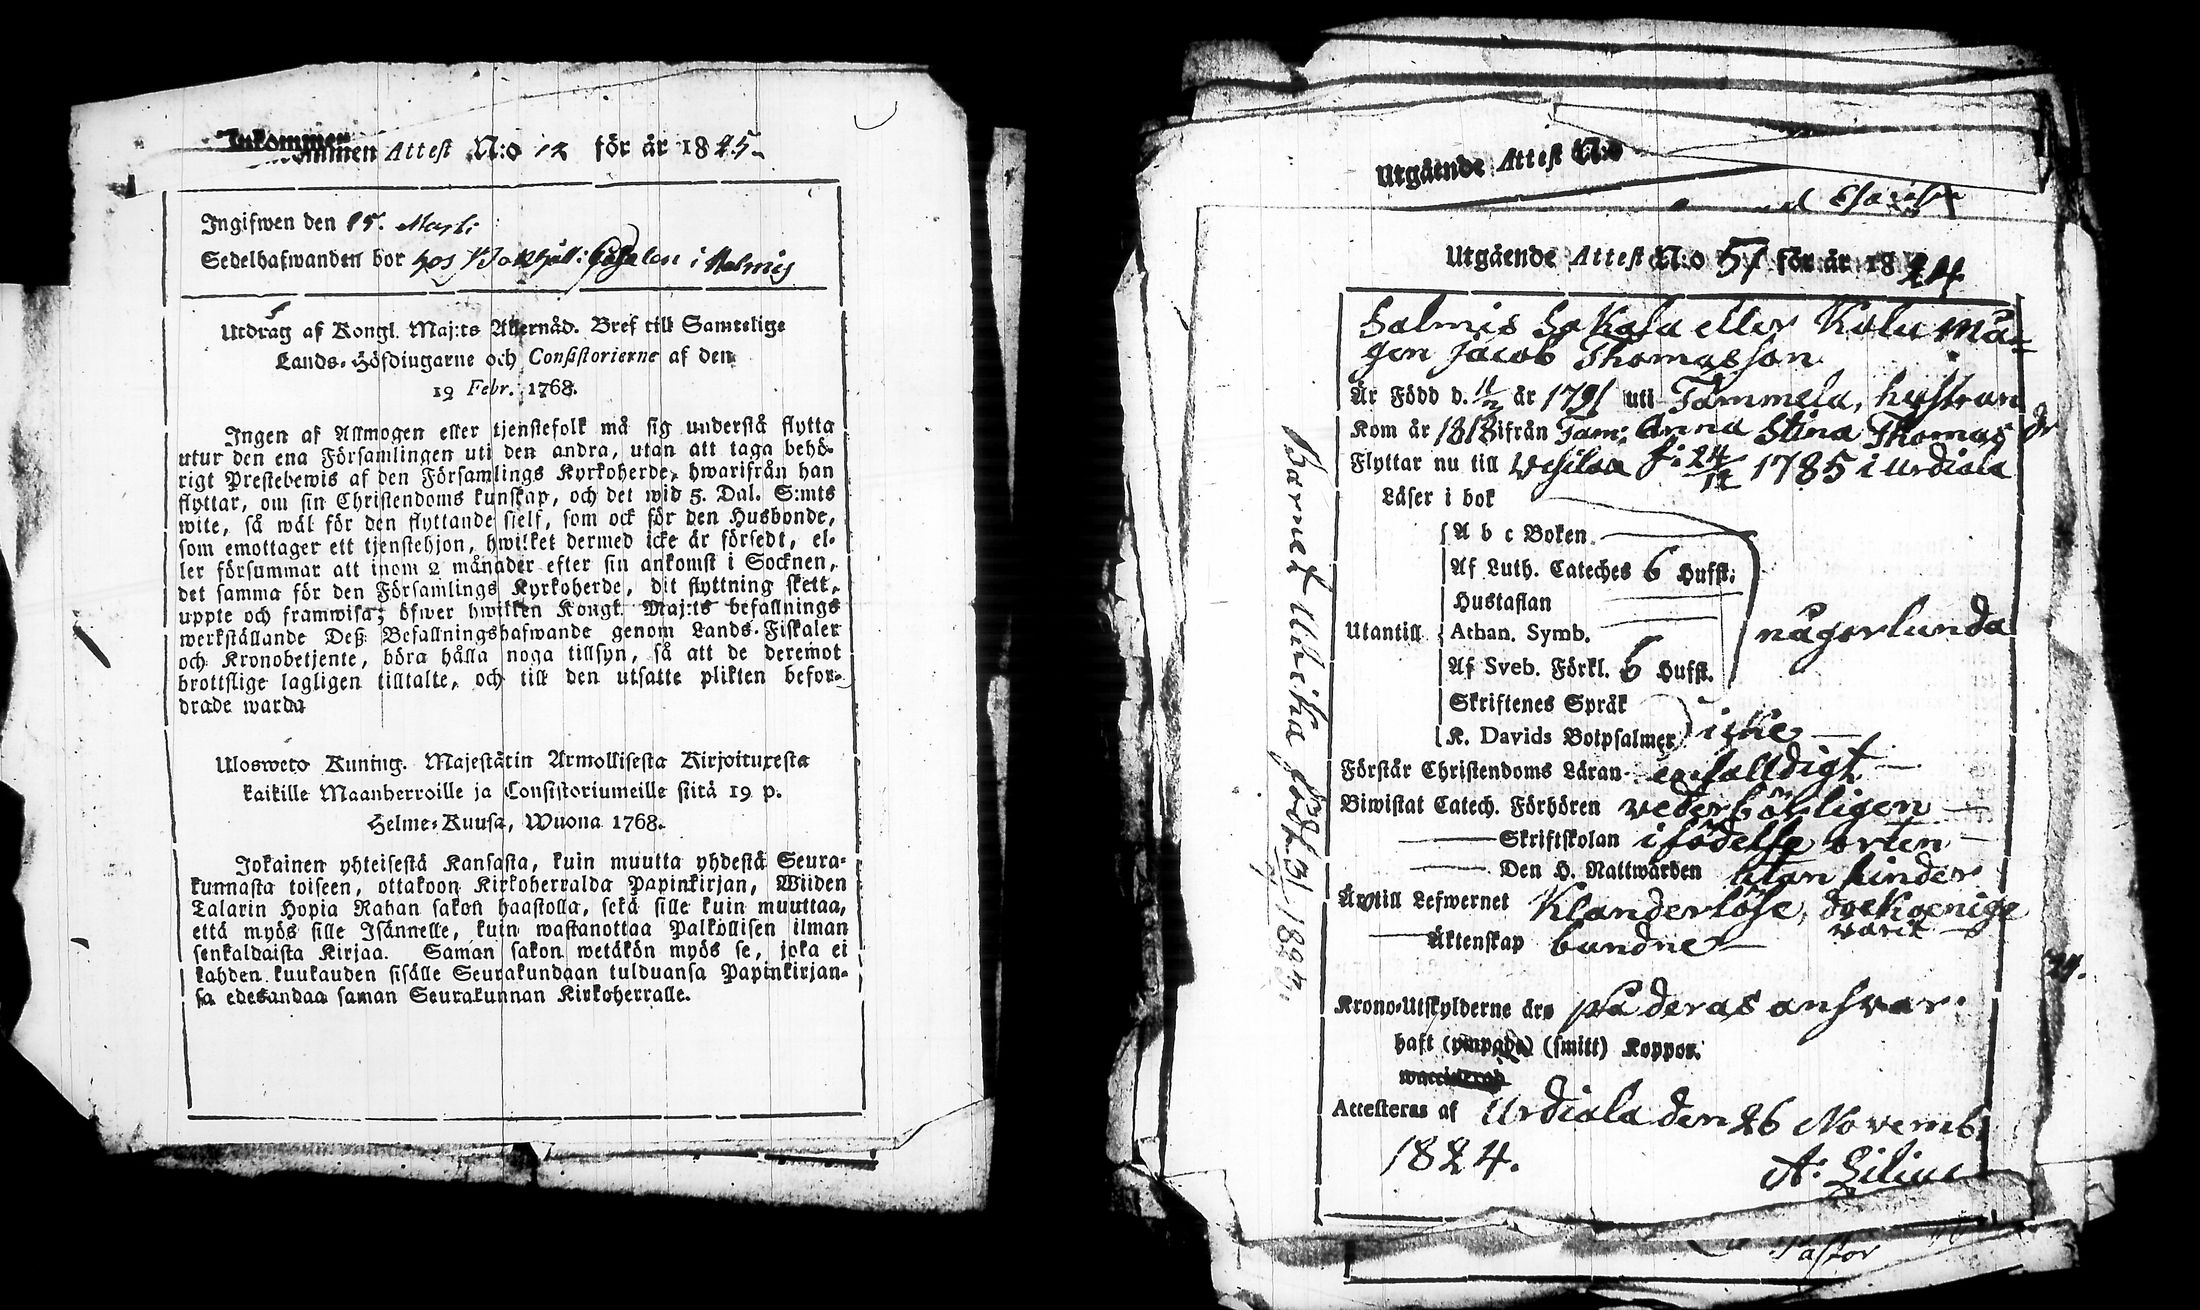 Inkommen Attest N:o 12 för år 1825.
Ingifwen den 25. Martii
Sedelhafwanden bor hos i Salmis
Utdrag af Kongl. Maj:ts Allernåd. Bref till Samtelige
Lands-Höfdingarne och Consistorierne af den
19 Febr. 1768.
Ingen af Allmogen eller tjenstefolk må sig understå flytta
utur den ena Församlingen uti den andra, utan att taga behö-
rigt Prestebewis af den Församlings Kyrkoherde, hwarifrån han
flyttar, om sin Christendoms kunskap, och det wid 5. Dal. S:mts
wite, så wäl för den flyttande sielf, som ock för den Husbonde,
som emottager ett tjenstehjon, hwilket dermed icke är försedt, el-
ler försummar att inom 2 månader efter sin ankomst i Socknen,
det samma för den Församlings Kyrkoherde, dit flyttning skett,
uppte och framwisa; öfwer hwilken Kongl. Maj:ts befallnings
werkställande Deß Befallningshafwande genom Lands-Fiskaler
och Kronobetjente, böra hålla noga tillsyn, så att de deremot
brottslige lagligen tilltalte, och till den utsatte plikten befor-
drade warda
Ulosweto Kuning. Majestätin Armollisesta Kirjoituxesta
kaikille Maanherroille ja Consistoriumeille siitä 19 p.
Helme-Kuusa, Wuona 1768.
Jokainen yhteisestä Kansasta, kuin muutta yhdestä Seura-
kunnasta toiseen, ottakoon Kirkoherralda Papinkirjan, Wiiden
Talarin Hopia Rahan sakon haastolla, sekä sille kuin muuttaa,
että myös sille Isännelle, kuin wastanottaa Palkollisen ilman
senkaldaista Kirjaa. Saman sakon wetäkön myös se, joka ei
kahden kuukauden sisälle Seurakundaan tulduansa Papinkirjan-
sa edesandaa saman Seurakunnan Kirkoherralle.
Utgående Attest N:o
Utgående Attest N:o 51 för år 1824
Salmis Sokala eller Kulu må-
gen Jacob Thomasson
Är Född d. 11/2 år 1791 uti Tammela, hustrun
Kom år 1818 ifrån Tam: Anna Stina Thomas dr
Flyttar nu till Vesilax f: 24/12 1785 i Urdiala
Läser i bok
A b c Boken
Af Luth. Cateches 6 Hufst;
Hustaflan
Utantill Athan. Symb. någorlunda
Af Sveb. Förkl. 6 Hufst.
Skriftenes Språk
K. Davids Botpsalmer icke
Förstår Christendoms Läran enfalldigt
Biwistat Catech. Förhören vederbörligen
Skriftskolan i födelse orten
Den H. Nattwarden utan hinder
Är till Lefwernet Klanderlöse, dock oenige
varit
Äktenskap bundne
Krono-Utskylderne äro på deras ansvar.
haft (ympade) (smitt) Koppor.
waccinerad
Attesteras af Urdiala den 26 Novemb:
1824.
A: Lilius
Barnet Ulrika född 1823.
Pastor